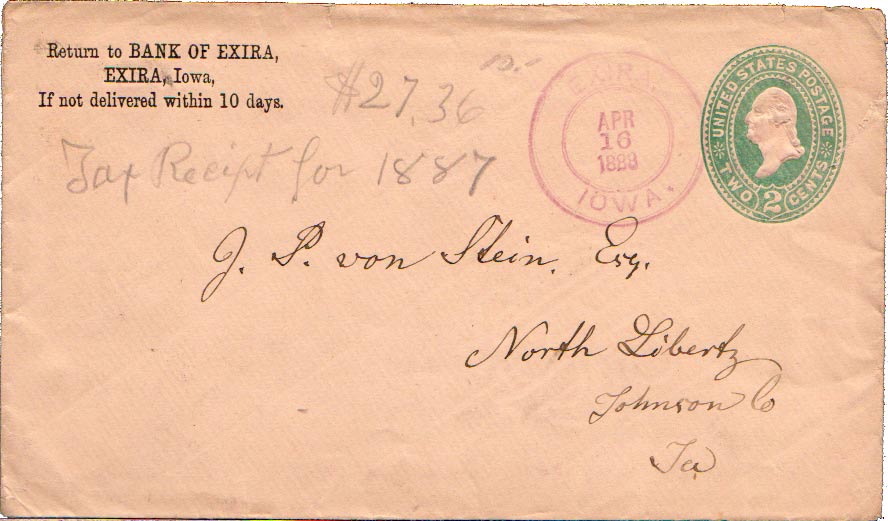 Return to BANK OF EXIRA,
EXIRA, Iowa,
If not delivered within 10 days.
$27.36
Tax Receipt for 1887
EXIRA,
APR
16
1888
IOWA.
UNITED STATES POSTAGE
TWO 2 CENTS
J. P. von Stein, Esq.
North Libertz
Johnson Co
Ia